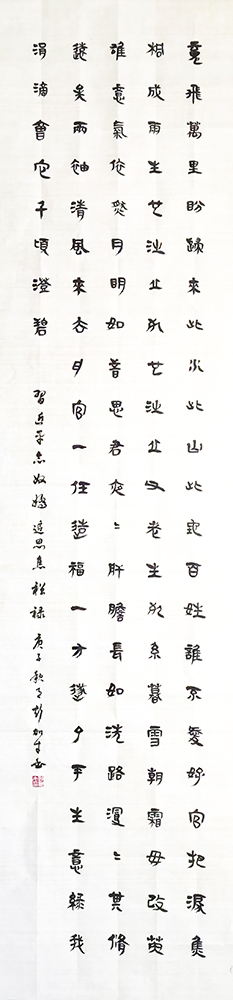 魂飛萬里盼歸來此水此山此地百姓誰不愛好官把淚焦
桐成雨生也沙丘死也沙丘父老生死系暮雪朝霜毋改英
雄意氣依然月明如昔思君夜〻肝膽長如洗路漫〻其修
遠矣兩袖清風來去為官一任造福一方遂了平生意綠我
涓滴會它千頃澄碧
習近平念奴嬌追思焦裕祿 庚子秋月